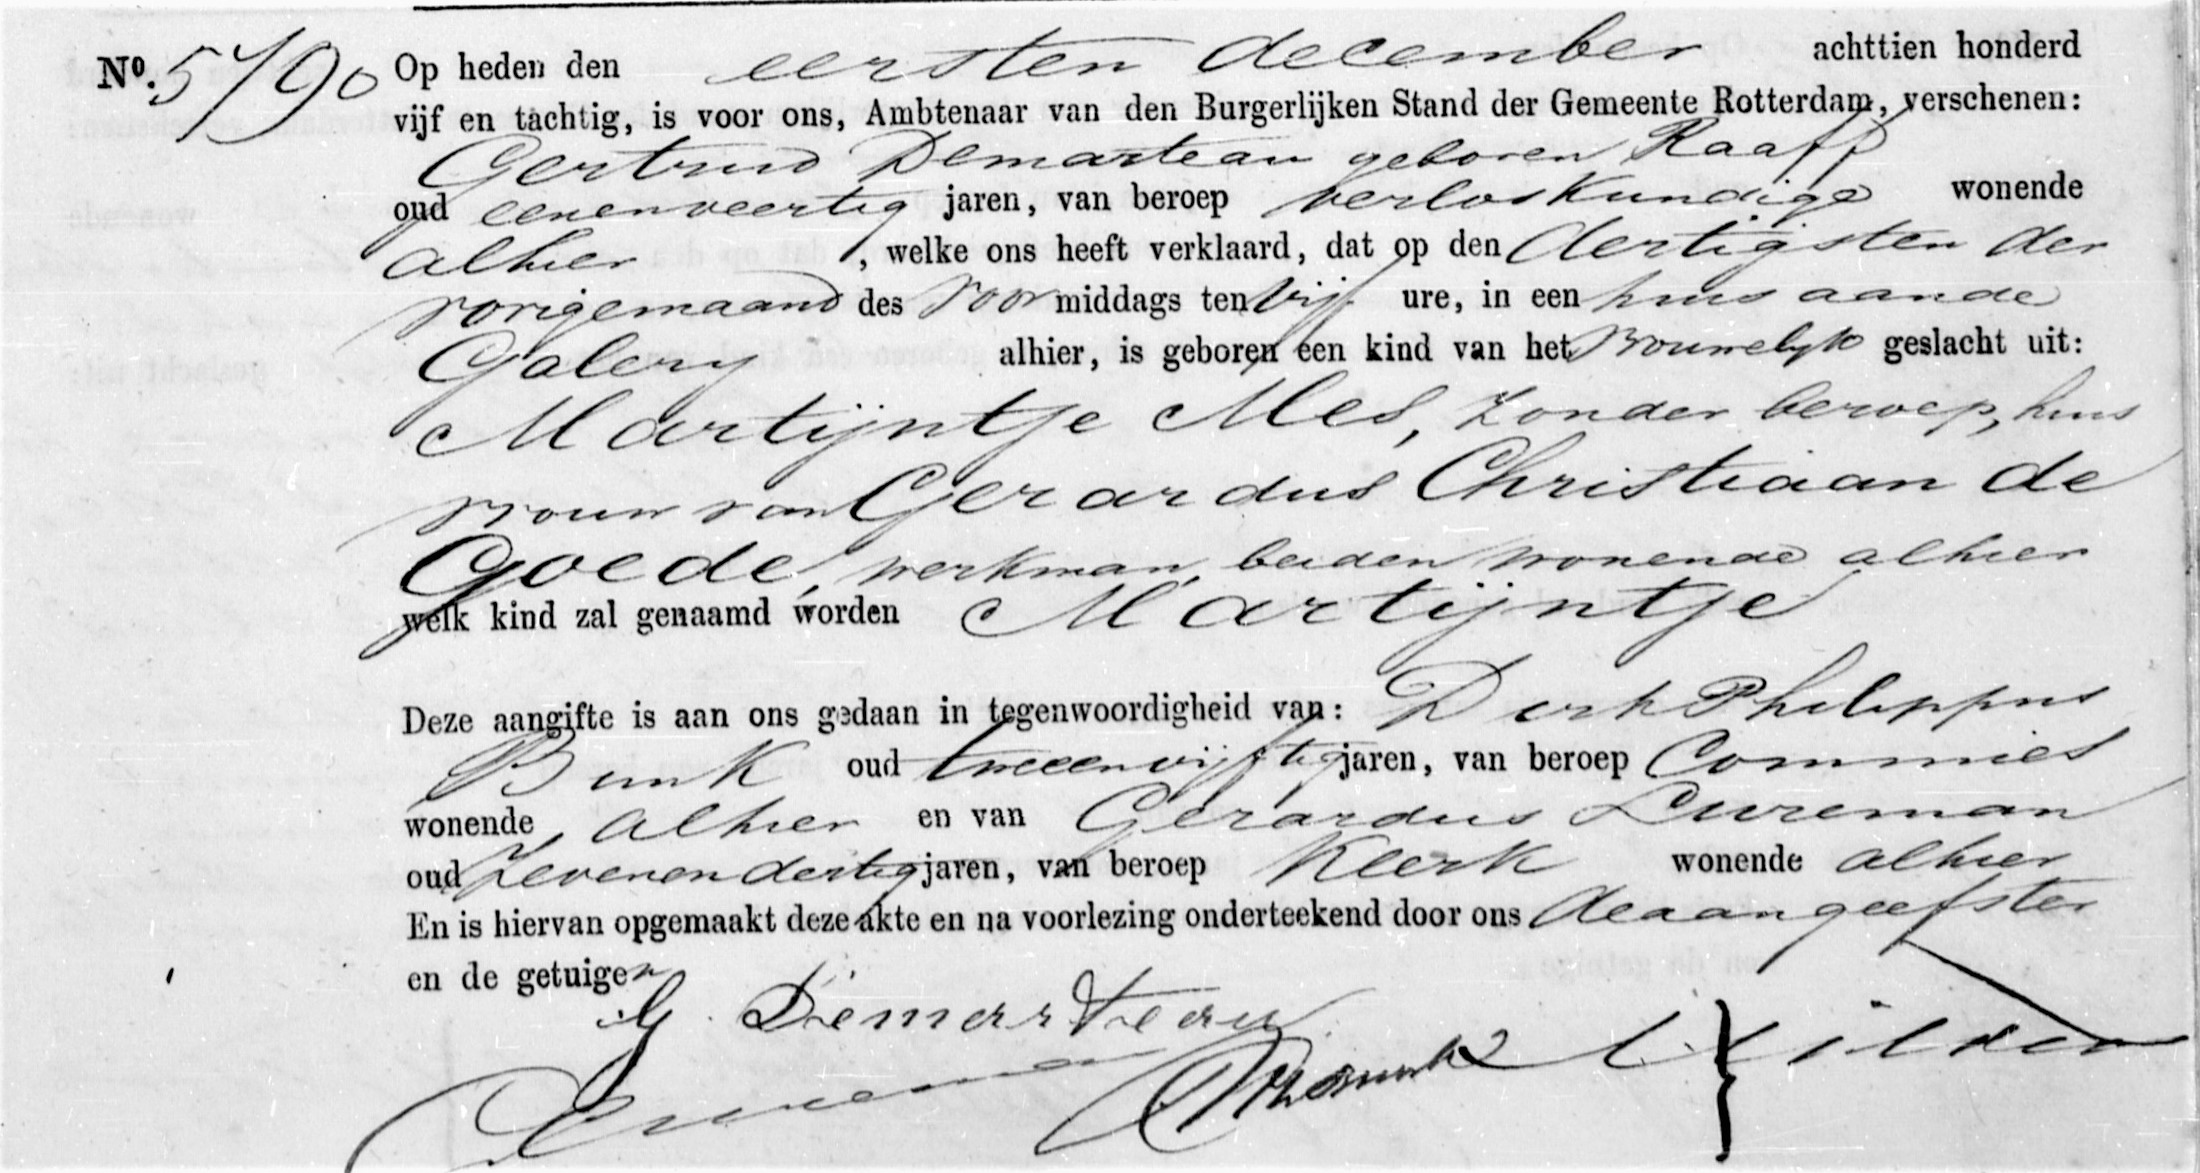 No. 5790 Op heden den eersten december achttien honderd
vijf en tachtig, is voor ons, Ambtenaar van den Burgerlijken Stand der Gemeente Rotterdam, verschenen:
Gertrud Demarteau geboren Raaff
oud eenenveertig jaren, van beroep verloskundige wonende
alhier, welke ons heeft verklaard, dat op den dertigsten der
vorigemaand des voormiddags ten vijf ure, in een huis aan de
Galery alhier, is geboren een kind van het vrouwelyk geslacht uit:
Martijntje Mes, zonder beroep, huis
vrouw van Gerardus Christiaan de
Goede, werkman, beiden wonende alhier
welk kind zal genaamd worden Martijntje
Deze aangifte is aan ons gedaan in tegenwoordigheid van: Dirk Philippus
Bunk oud tweeenvijftig jaren, van beroep Commies
wonende alhier en van Gerardus Lureman
oud zevenendertig jaren, van beroep Klerk wonende alhier
En is hiervan opgemaakt deze akte en na voorlezing onderteekend door ons de aangeefster
en de getuigen
G. Demarteau